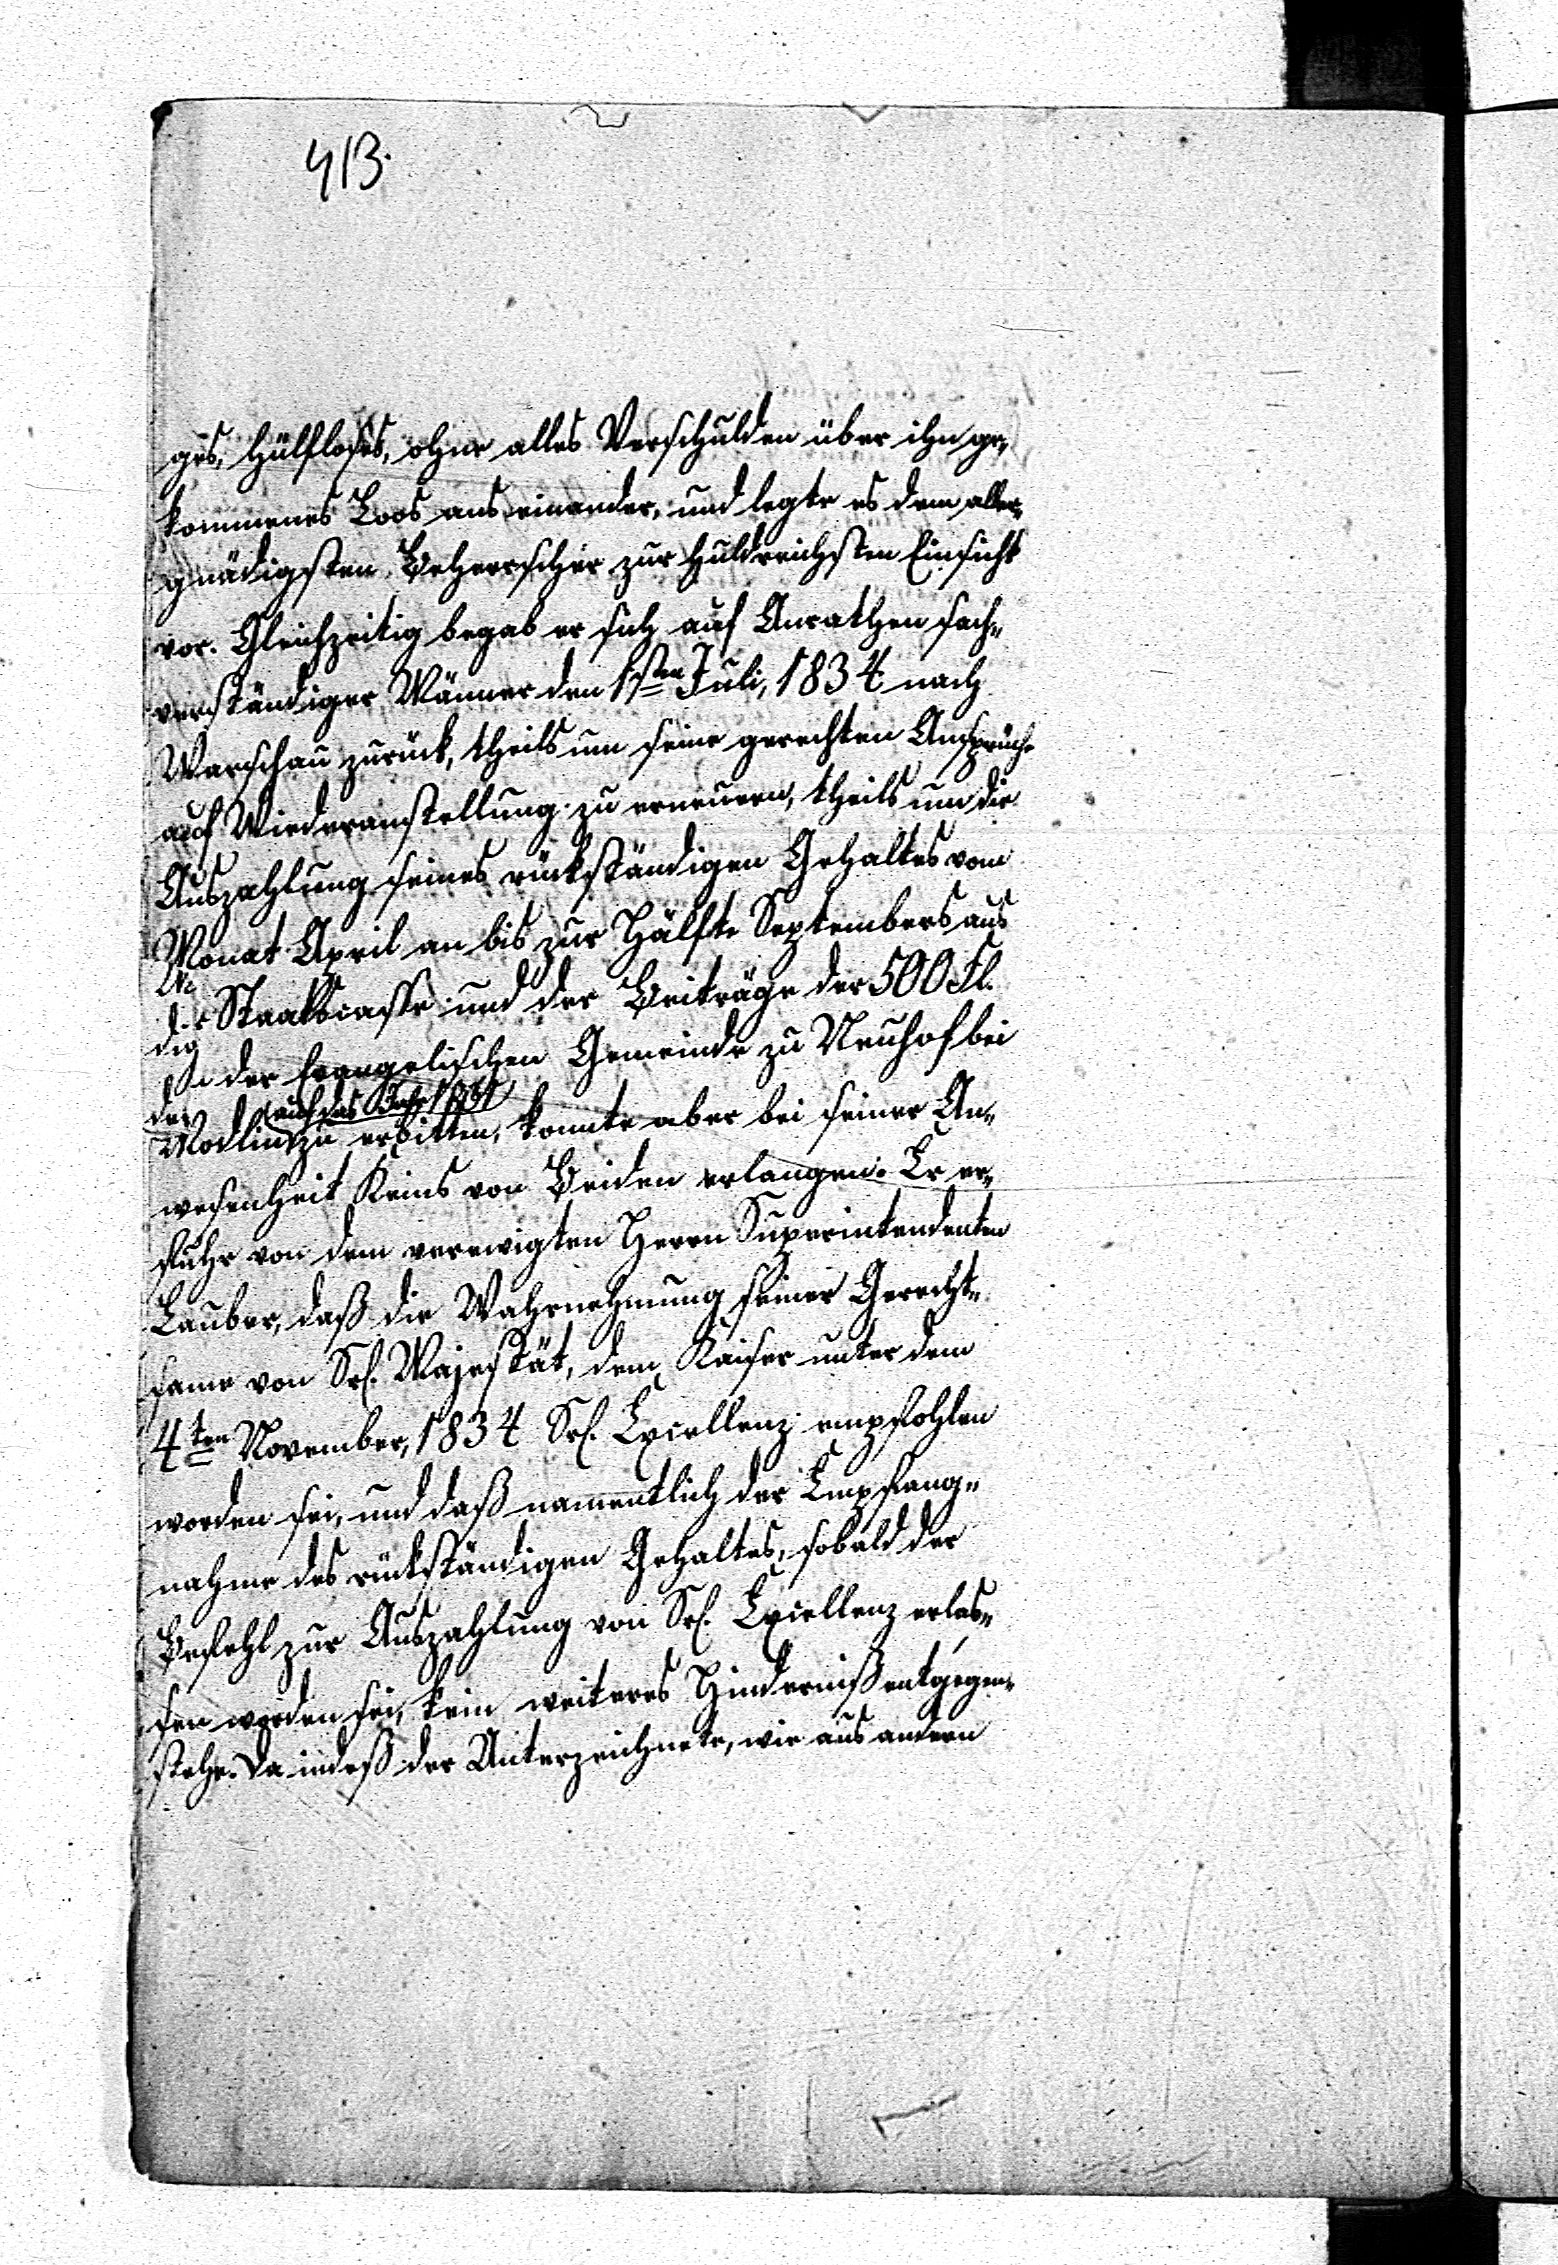 413.
ges, hülfloses, ohne alles Verschulden über ihn ge-
kommenes Loos aus einander, und legte es dem aller-
gnädigsten Beherrscher zur huldreichsten Einsicht
vor. Gleichzeitig begab er sich auf Anrathen sach-
verständiger Männer den 1sten Juli, 1834 nach
Warschau zurück, theils um seine gerechten Ansprüche
auf Wiederanstellung zu erneuern, theils um die
Auszahlung seines rückständigen Gehaltes vom
Monat April an bis zur Hälfte Septembers aus
der Staatscasse und der Beiträge der 500 Fl.
der Evangelischen Gemeinde zu Neuhof bei
auf das Jahr 1831
Modlin zu erbitten, konnte aber bei seiner An-
wesenheit Keins von Beiden erlangen. Er er-
fuhr von dem verewigten Herrn Superintendenten
Lauber, daß die Wahrnehmung seiner Gerecht-
same von Sr. Majestät, dem Kaiser unter dem
4ten November, 1834 Sr. Excellenz empfohlen
worden sei, und daß namentlich der Empfang-
nahme des rückständigen Gehaltes, sobald der
Befehl zur Auszahlung von Sr. Excellenz erlas-
sen worden sei, kein weiteres Hinderniß entgegen-
stehe. Da indeß der Unterzeichnete, wie aus andern